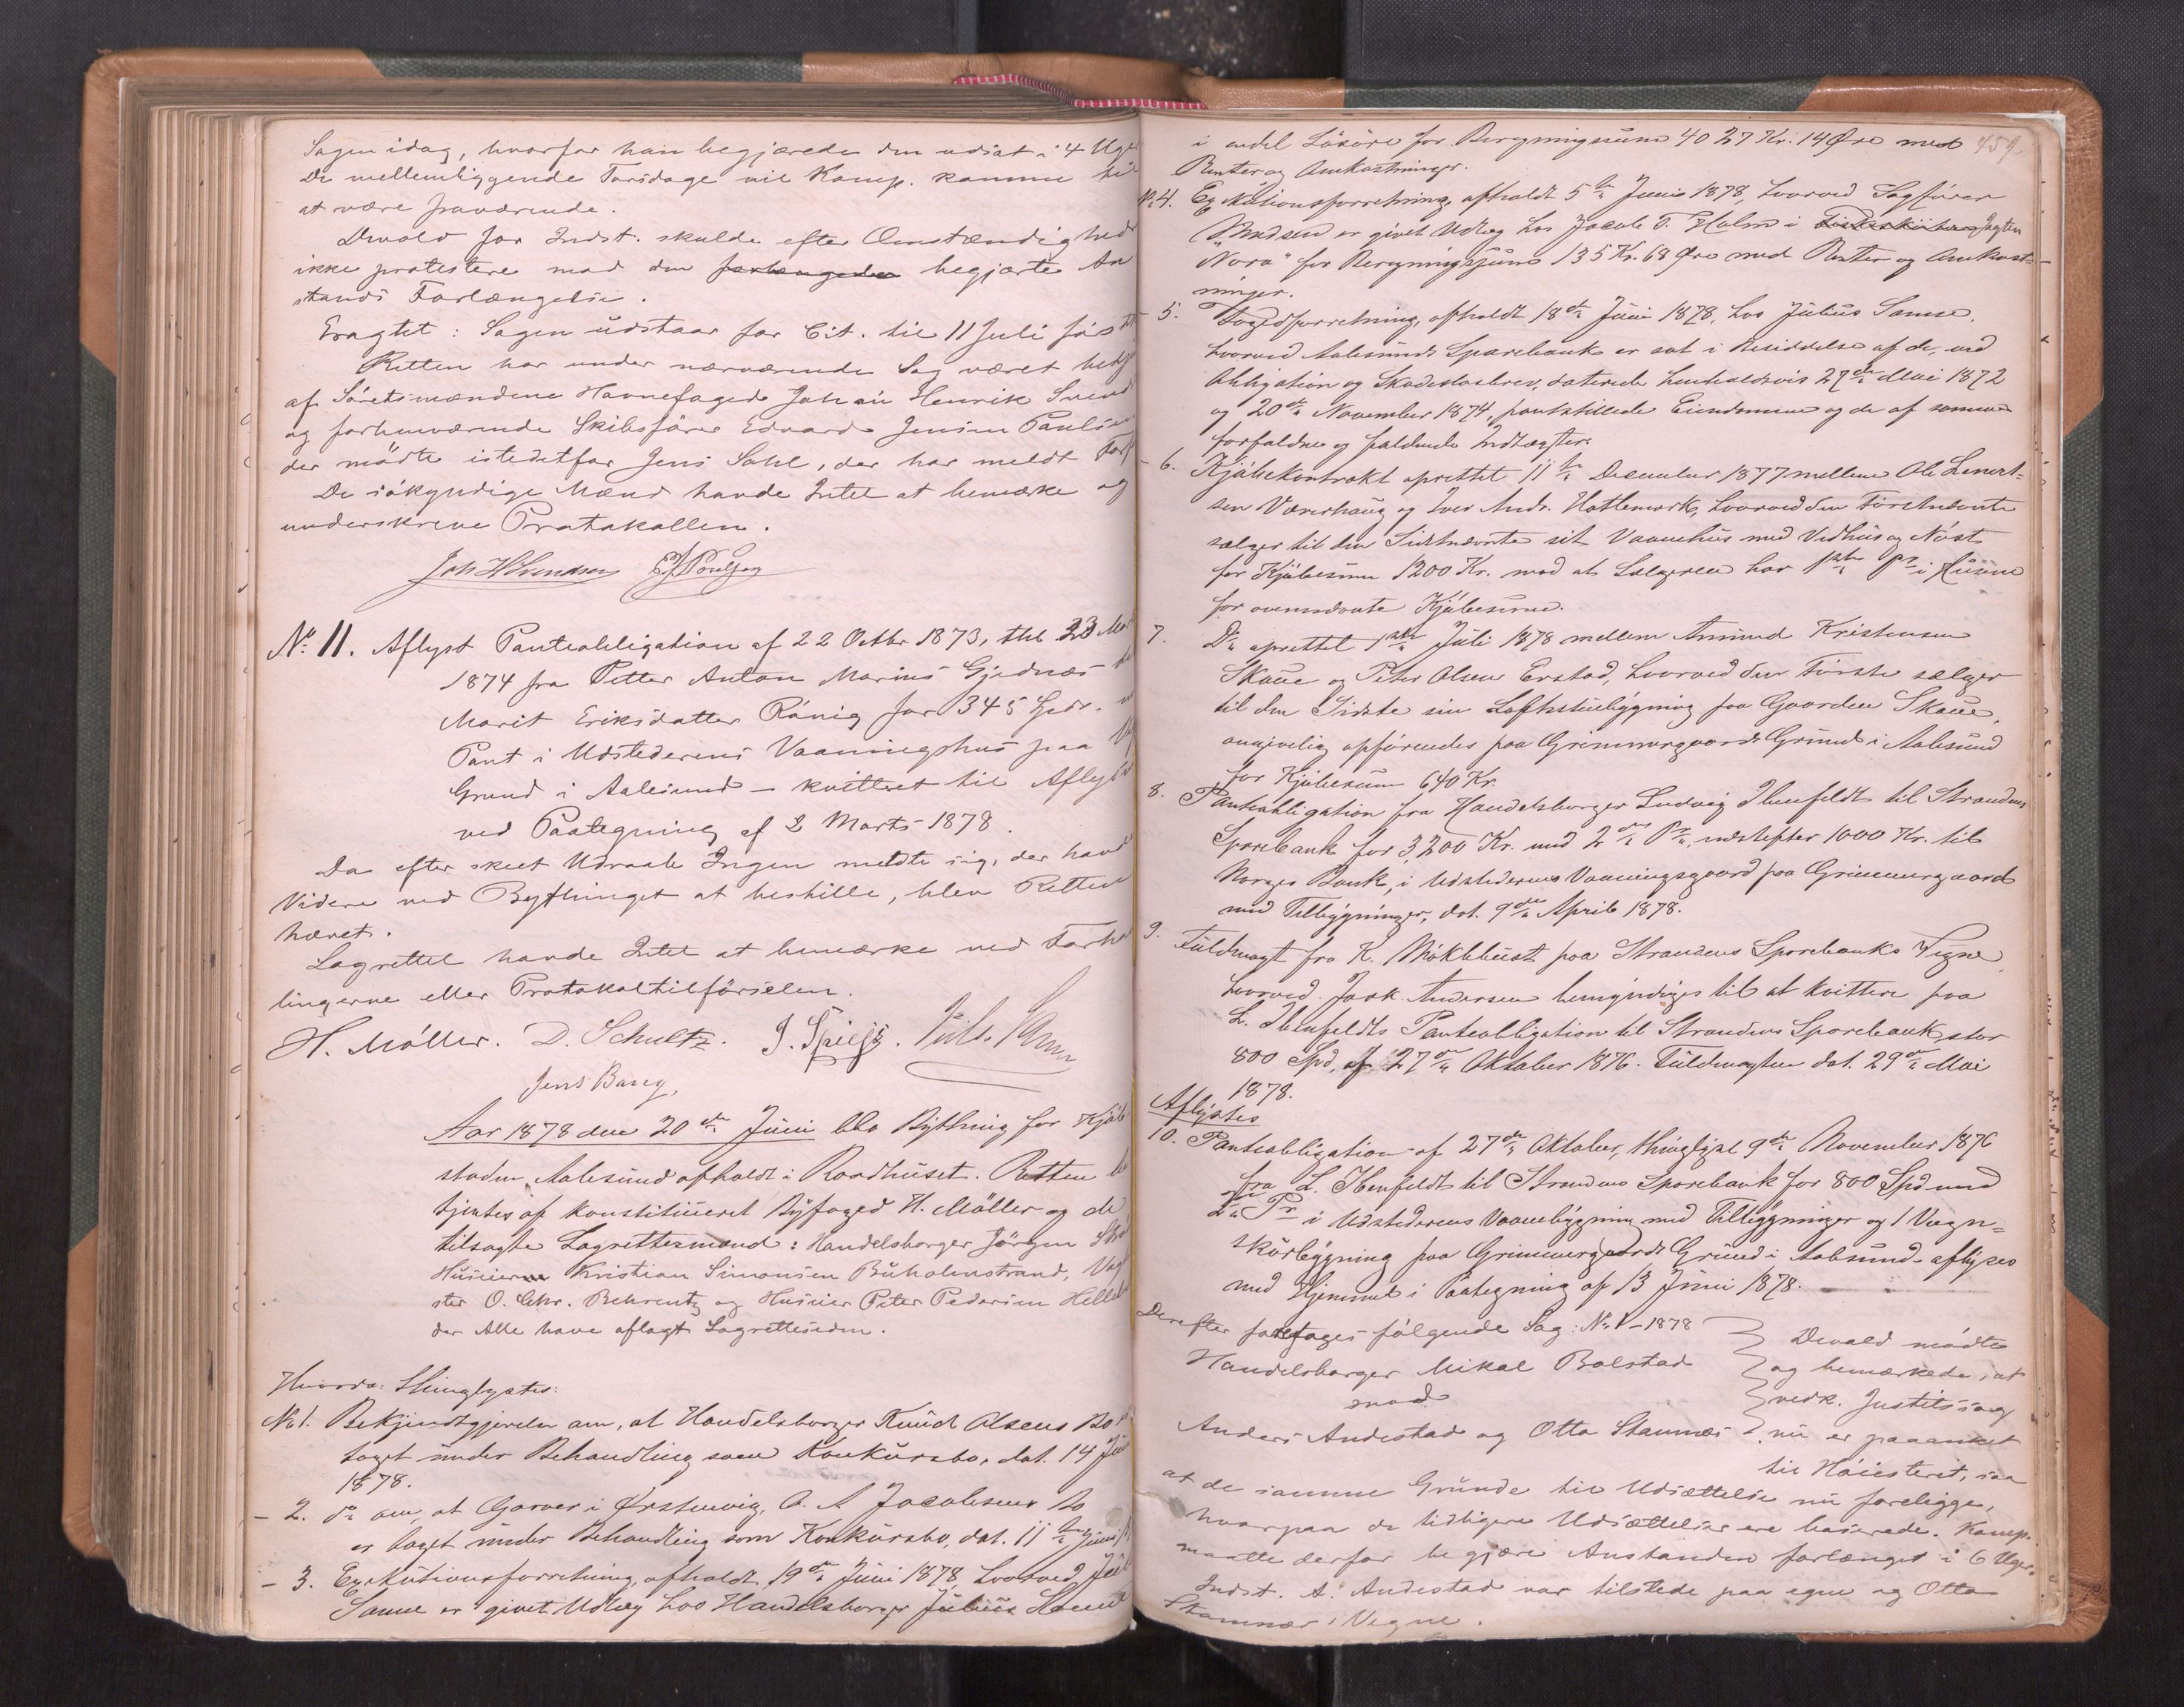 Sagen idag, hvorfor han begjærede den udsat i 4 Uger
De mellemliggende Torsdage vil Komp. komme til
at være fraværende.
Devold for Indst. skulde efter Omstændighed
ikke protestere mod den forlængede begjærte An
stands Forlængelse.
Eragtet: Sagen udstaar for Cit. til 11 Juli förstk
Retten har under nærværende Sag været betj
af Söretsmændene Havnefoged Johan Henrik Svend
og forhenværende Skibsförer Edvard Jensen Paulsen
der mödte istedetfor Jens Sahl, der har meldt Forf
De sökyndige Mænd havde Intet at bemærke og
underskreve Protokollen.
Joh H Svendsen EJPoulsen
No. 11. Aflyst Panteobligation af 22 Octbr 1873, thl. 23 Mar
1874 fra Petter Anton Marius Gjednæs
Marit Eriksdatter Rönig for 345 Spdr.
Pant i Udstederens Vaaningshus paa
Grund i Aalesund – kvitteret til Aflys
ved Paategning af 2 Marts 1878.
Da efter skeet Udraab Ingen meldte sig, der havde
Videre ved Bythinget at bestille, blev Retten
hævet.
Lagrettet havde Intet at bemærke ved Forha
lingerne eller Protokoltilförselen.
H. Möller. D. Schultz. J.
Jens Bang,
Aar 1878 den 20de Juni blev Bything for Kjöb
staden Aalesund afholdt i Raadhuset. Retten be
tjentes af konstitueret Byfoged H. Möller og de
tilsagte Lagrettesmænd: Handelsborger Jörgen
Huseier Kristian Simonsen Buholmstrand, Vag
ster O. Chr. Behrentz og Huseier Peter Pedersen Helle
der Alle have aflagt Lagretteseden.
Hvorda: Thinglystes:
No 1. Bekjendtgjørelse om, at Handelsborger Knud Olsens Bo
taget under Behandling som Konkursbo, dat. 14 Jun
1878.
– 2. do om, at Garver i Ørstenvig, O. A. Jacobsens Bo
er taget under Behandling som Konkursbo, dat. 11te Juni
– 3. Exekutionsforretning, afholdt 19de Juni 1878, hvorved Jul
Sanne er givet Udlæg hos Handelsborger Julius
459.
i endel Lösöre for Beregningssum 4027 Kr. 14 Øre med
Renter og Omkostninger.
No 4. Exekutionsforretning, afholdt 5te Juni 1878, hvorved Sagförer
Madsen er givet Udlæg hos Jacob T. Holm i Jagten
"Nora" for Beregningssum 135 Kr. 68 Øre med Renter og Omkost-
ninger.
5. Fogedforretning, afholdt 18de Juni 1878, hos Julius Sanne,
hvorved Aalesunds Sparebank er sat i Besiddelse af de, ved
Obligation og Skadesløsbrev, daterede henholdsvis 27de Mai 1872
og 20de November 1874, pantstillede Eiendomme og de af samme
forfaldne og faldende Indtægter.
– 6. Kjöbekontrakt oprettet 11te December 1877 mellem Ole Lenert-
sen Værerhaug og Iver Andr. Hatlemark, hvorved den Förstnævnte
sælger til den Sidstnævnte sit Vaanehus med Vedhus og Nöst
for Kjöbesum 1200 Kr. mod at Sælgeren har 1ste Pr i Husene
for ovennævnte Kjöbesum.
7. Do oprettet 1ste Juli 1878 mellem Amund Kristensen
Skaue og Peter Olsen Erstad, hvorved den Förste sælger
til den Sidste sin Loftstuebygning paa Gaarden Skaue,
angivelig opförendes paa Grimmergaards Grund i Aalesund
for Kjöbesum 640 Kr.
8. Panteobligation fra Handelsborger Ludvig Ibenfeldt til Strandens
Sparebank for 3,200 Kr. med 2den Pr, næstefter 1000 Kr. til
Norges Bank, i Udstederens Vaaningsgaard paa Grimmergaard
med Tilbygninger, dat. 9de April 1878.
9. Fuldmagt fra K. Möklebust paa Strandens Sparebanks Vegne,
hvorved Jack. Andersen bemyndiges til at kvittere paa
L. Ibenfeldts Panteobligation til Strandens Sparebank, stor
800 Spd, af 27de Oktober 1876. Fuldmagten dat. 29de Mai
1878.
Aflystes
10. Panteobligation af 27de Oktober, thinglyst 9de November 1876
fra L. Ibenfeldt til Strandens Sparebank for 800 Spd med
2den Pr i Udstederens Vaanebygning med Tilbygninger og 1 Vogn-
skurbygning paa Grimmergaards Grund i Aalesund – aflyses
med Hjemmel i Paategning af 13 Juni 1878.
Derefter foretoges fölgende Sag: No 1 – 1878
Handelsborger Mikal Bolstad
mod
Anders Andestad og Otto Stamnæs
Devold mödte
og bemærkede, at
vedk. Justitssag
nu er paaanket
til Höiesteret, saa
at de samme Grunde til Udsættelse nu foreligge,
hvorpaa de tidligere Udsættelser ere baserede. Komp.
maatte derfor begjære Anstanden forlænget i 6 Uger.
Indst. A. Andestad var tilstede paa egne og Otto
Stamnæs's Vegne.